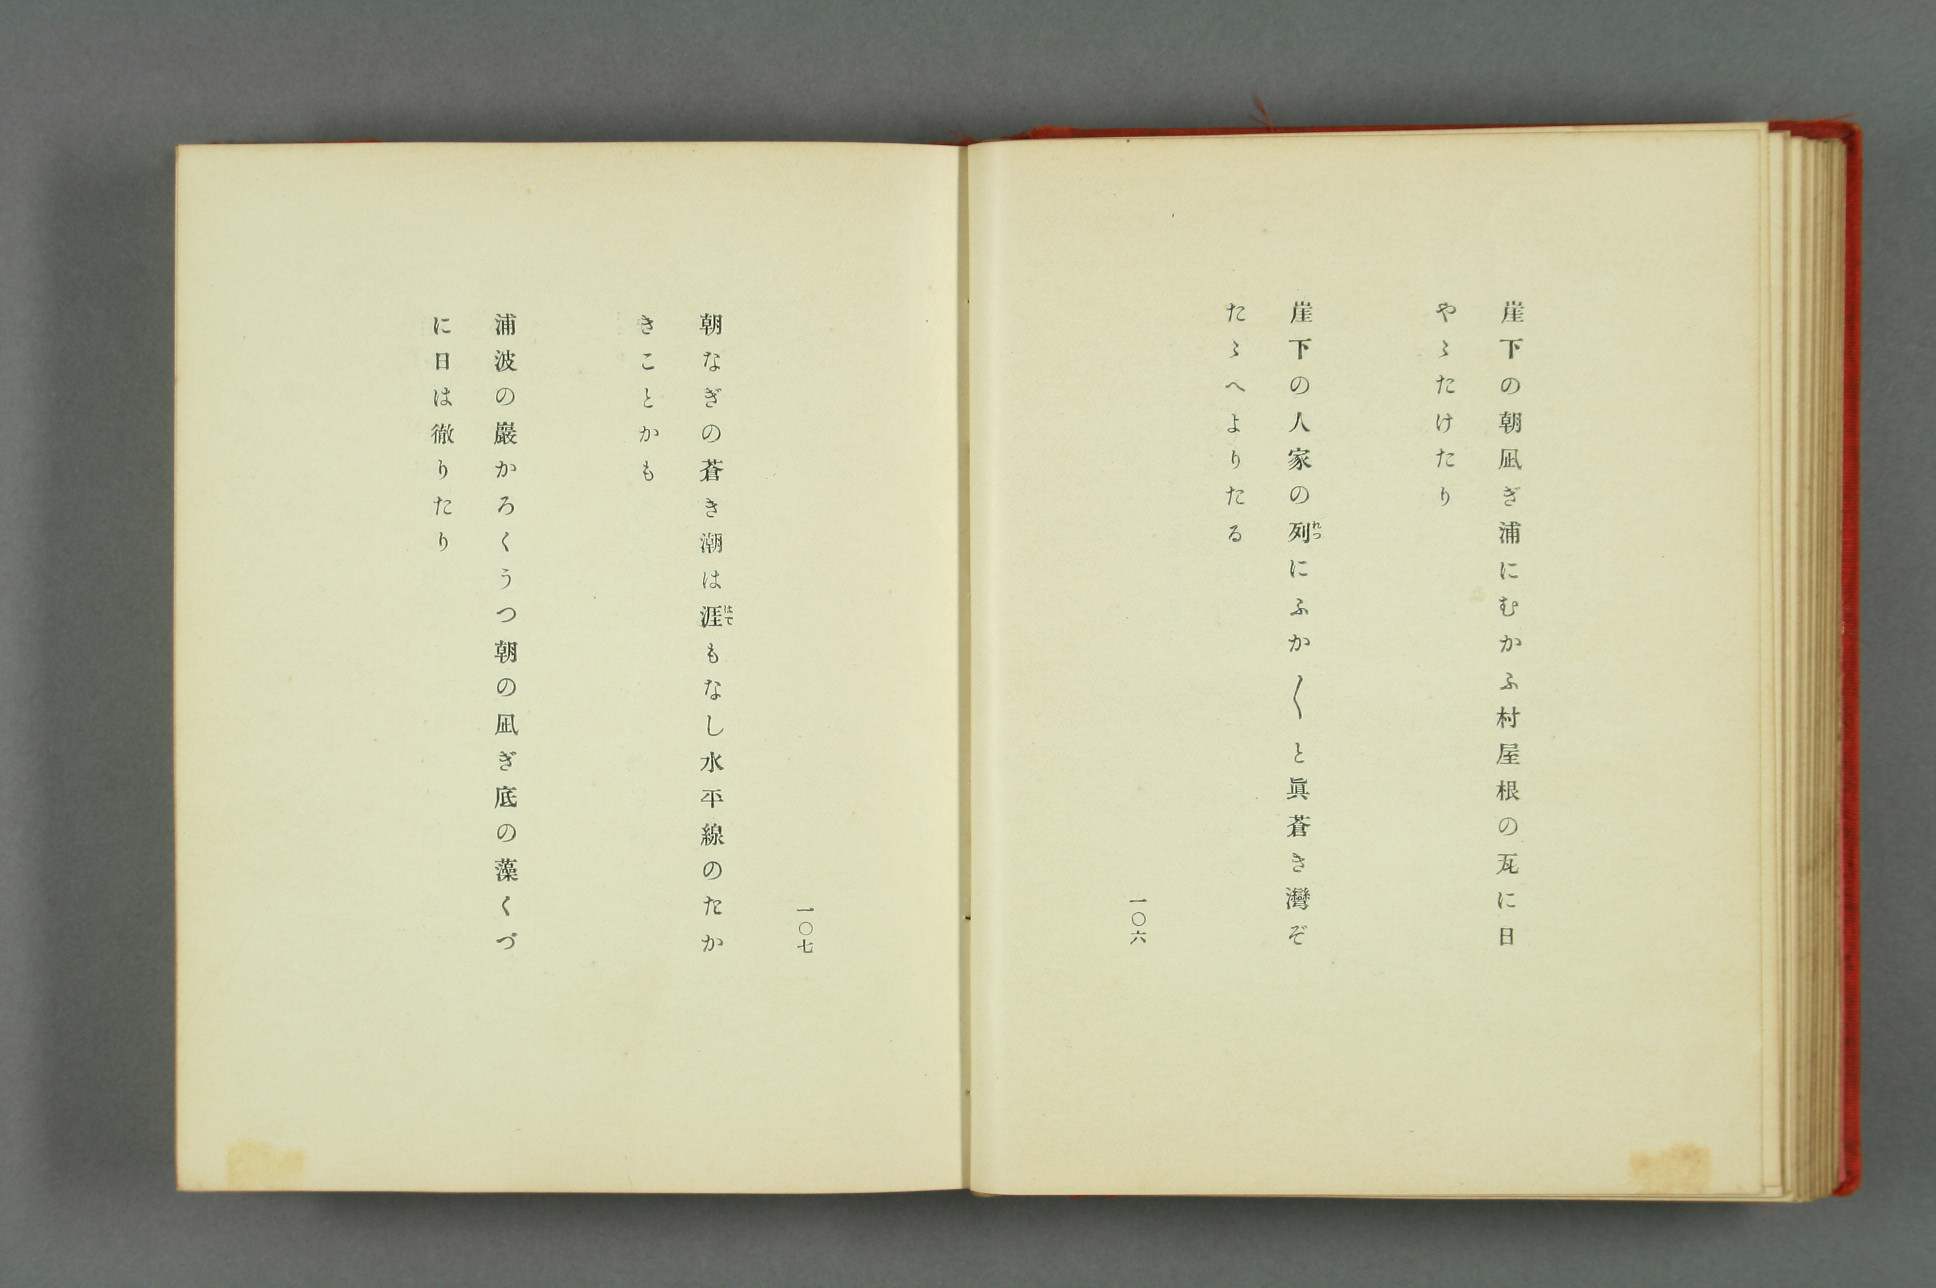 崖下の朝凪ぎ浦にむかふ村屋根の瓦に日
やゝたけたり
崖下の人家の列にふか〳〵と眞蒼き灣ぞ
たゝへよりたる
一〇六
一〇七
朝なぎの蒼き潮は涯もなし水平線のたか
きことかも
浦波の巖かろくうつ朝の凪ぎ底の藻くづ
に日は徹りたり